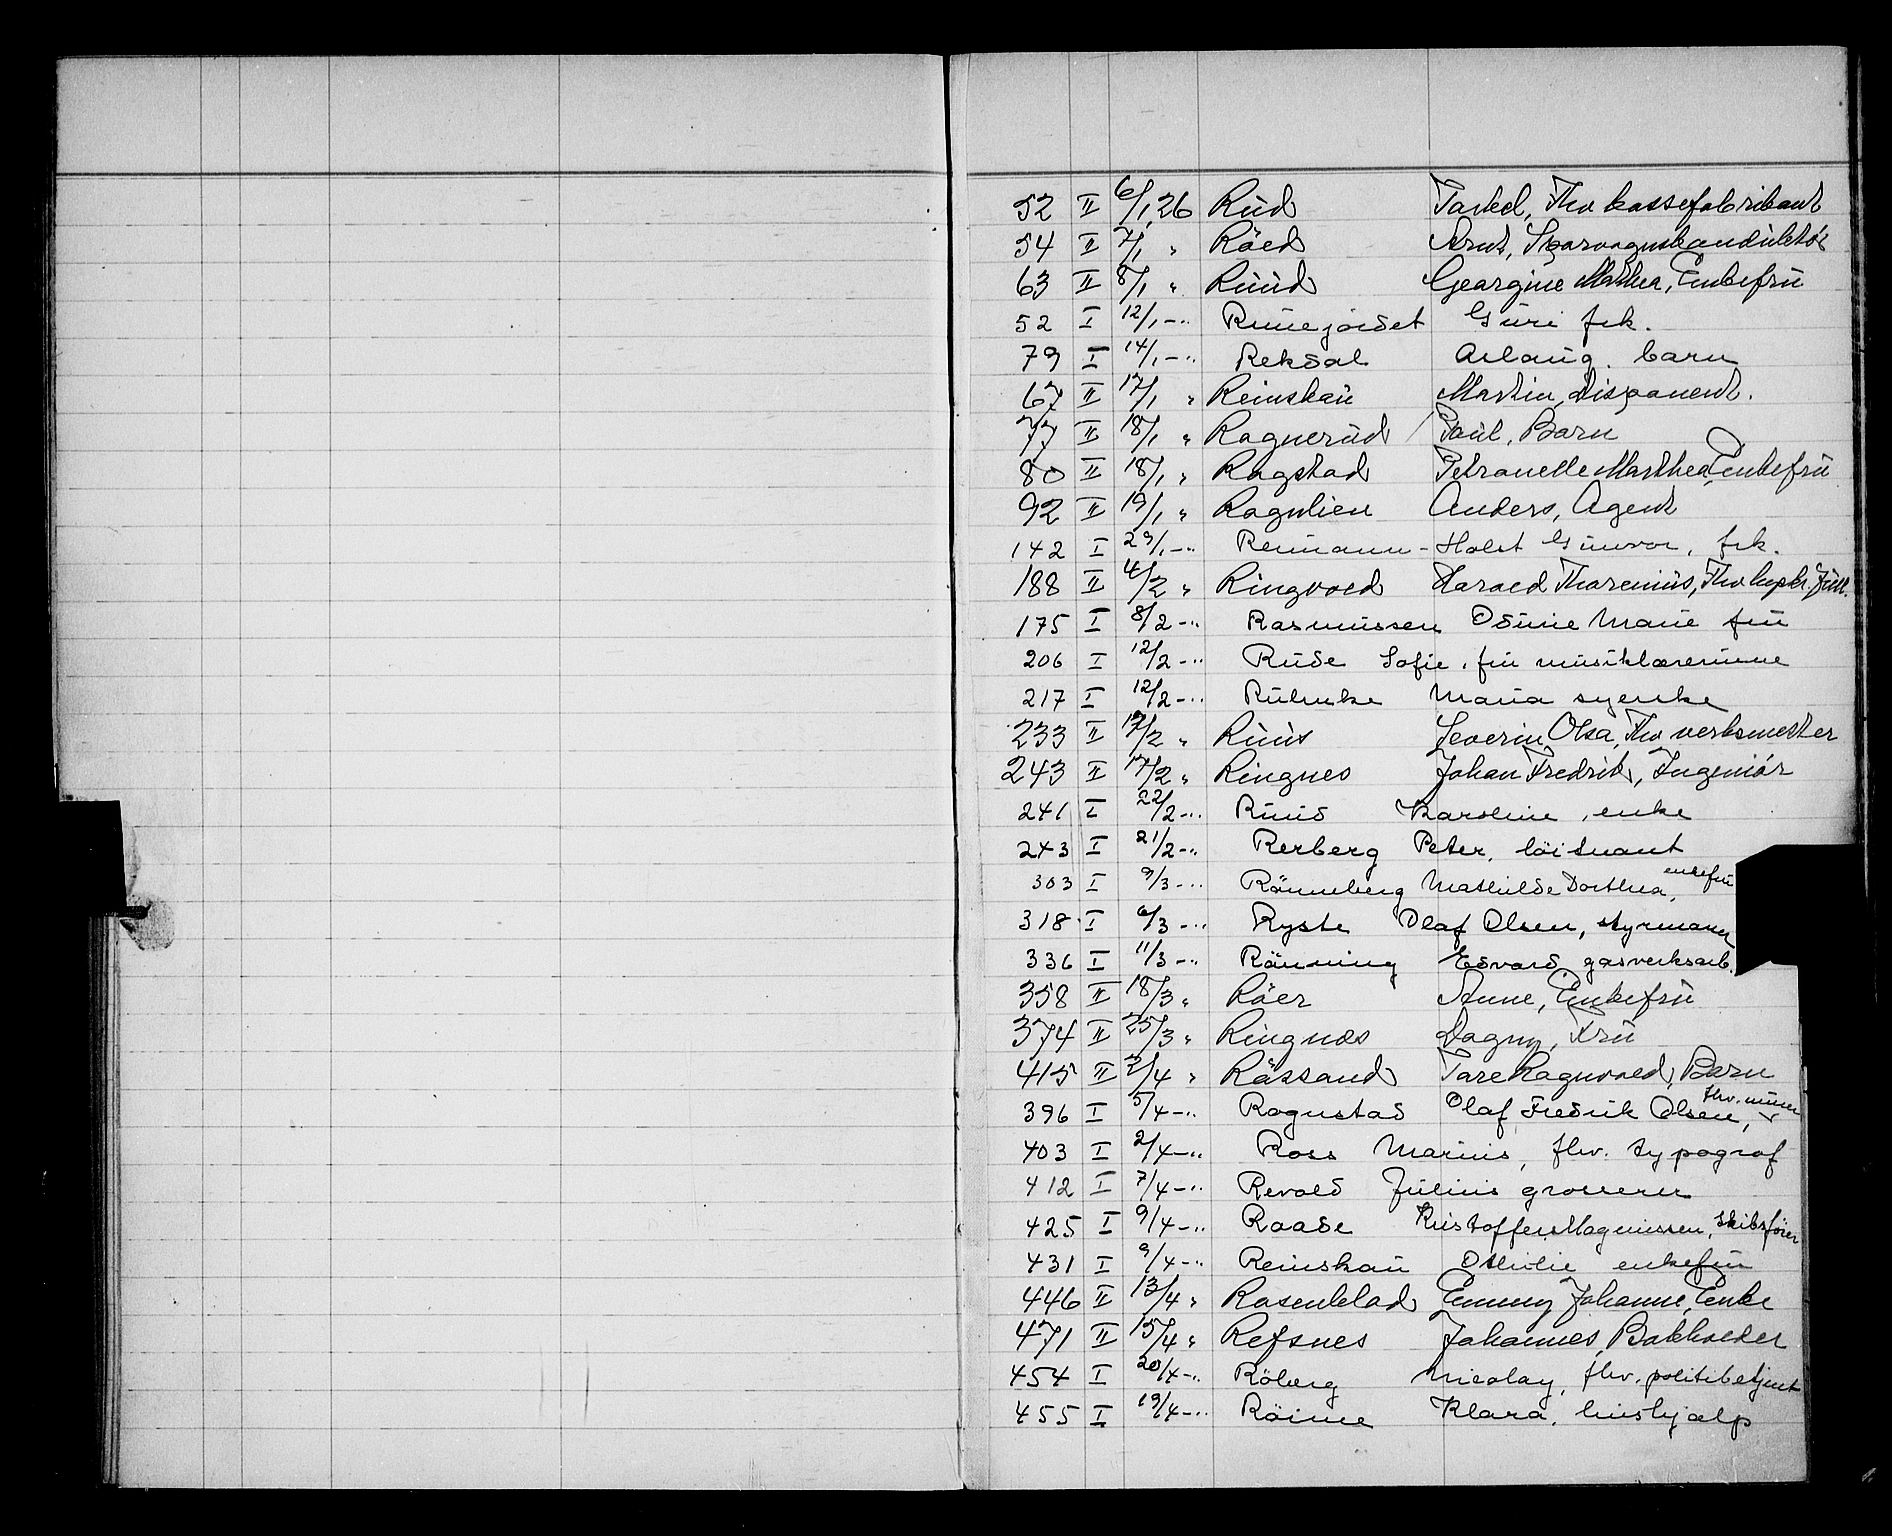 52 II 6/1 26 Rud Torkel, Fhv kassefabrikant
54 II 7/1 " Röed Arnt, Sporvognskonduktör
63 II 8/1 " Ruud Georgine Mathea, Enkefru
52 I 12/1 -" Runejordet Guri frk.
79 I 14/1 -" Reksdal Aslaug. barn
67 II 17/1 " Reinskau Martin, disponent.
77 II 18/1 " Ragnerud Poul, Barn
80 II 18/1 " Rogstad Petronelle Marthea, Enkefru
92 II 19/1 " Rognlien Anders, Agent
142 I 29/1 -" Reimann - Holst Gunvor, frk.
188 II 4/2 " Ringvold Harald Thorenius,
175 I 8/2 -" Rasmussen Odine Marie fru
206 I 12/2 -" Rude Sofie. fru musiklærerinne
217 I 12/2 -" Maria syerske
233 II 17/2 " Ruus Severin Olsa, Fhv verksmester
243 II 17/2 " Ringnes Johan Fredrik, Ingeniör
241 I 22/2 -" Ruud Karoline, enke
243 I 21/2 -" Rerberg Peter. löitnant
303 I 9/3 -" Rönneberg Mathilde Dorthea, enkefru
318 I 6/3 -" Ryste Olaf Olsen, styrmann
336 I 11/3 -" Rönning Edvard gasverksarb.
358 II 18/3 " Röer Anne, Enkefru
374 II 25/3 " Ringnæs Dagny, Fru
415 II 2/4 " Rössand Tore Ragnvald, Barn
396 I 5/4 -" Rognstad Olaf Fredrik Olsen, fhv. murer
403 I 2/4 -" Ross Marius, fhv. typograf
412 I 7/4 -" Revold Julius grosserer
425 I 9/4 -" Raade Kristoffer Magnussen, skibsförer
431 I 9/4 -" Reinskau Othilie enkefru
446 II 13/4 " Rosenblad Emmy Johanne, Enke
471 II 15/4 " Refsnes Johannes, Bokholder
454 I 20/4 -" Röberg Nicolay, fhv. politibetjent
455 I 19/4 -" Röime Klara. hushjælp